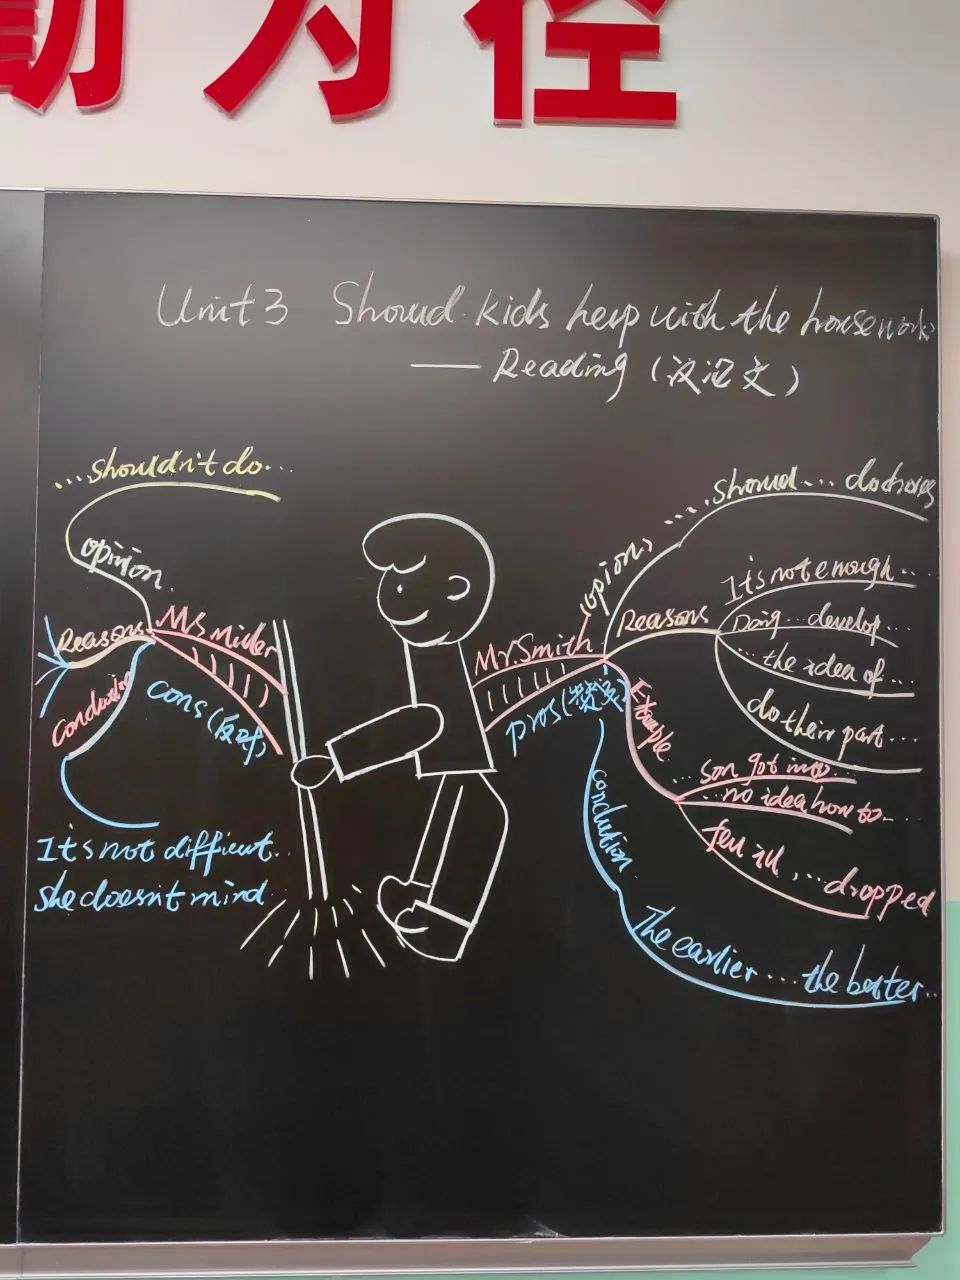 勤为径
Unit 3 Should kids help with the housework
—— Reading (议论文)
...shouldn't do...
opinion
Reasons
Ms Miller
Conclusion
cons(反对)
It's not difficult...
she doesn't mind
Mr. Smith
pros(赞成)
opion
.... should ... do chores
Reasons
It's not enough...
Doing ... develop...
... the idea of ...
do their part ...
Example
... son got into...
... no idea how to...
fell ill, ... dropped
conclution
The earlier ... the better...